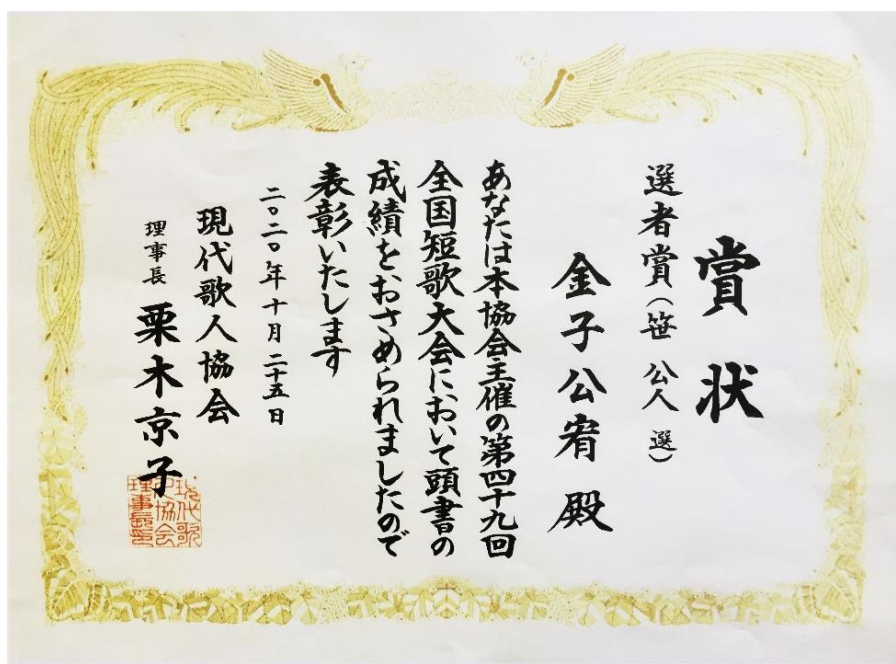 賞状
選者賞（笹 公人 選）
金子公宥 殿
あなたは本協会主催の第四十九回
全国短歌大会において頭書の
成績をおさめられましたので
表彰いたします
二〇二〇年十月二十五日
現代歌人協会
理事長 栗木京子
現代歌
人協会
理事長印